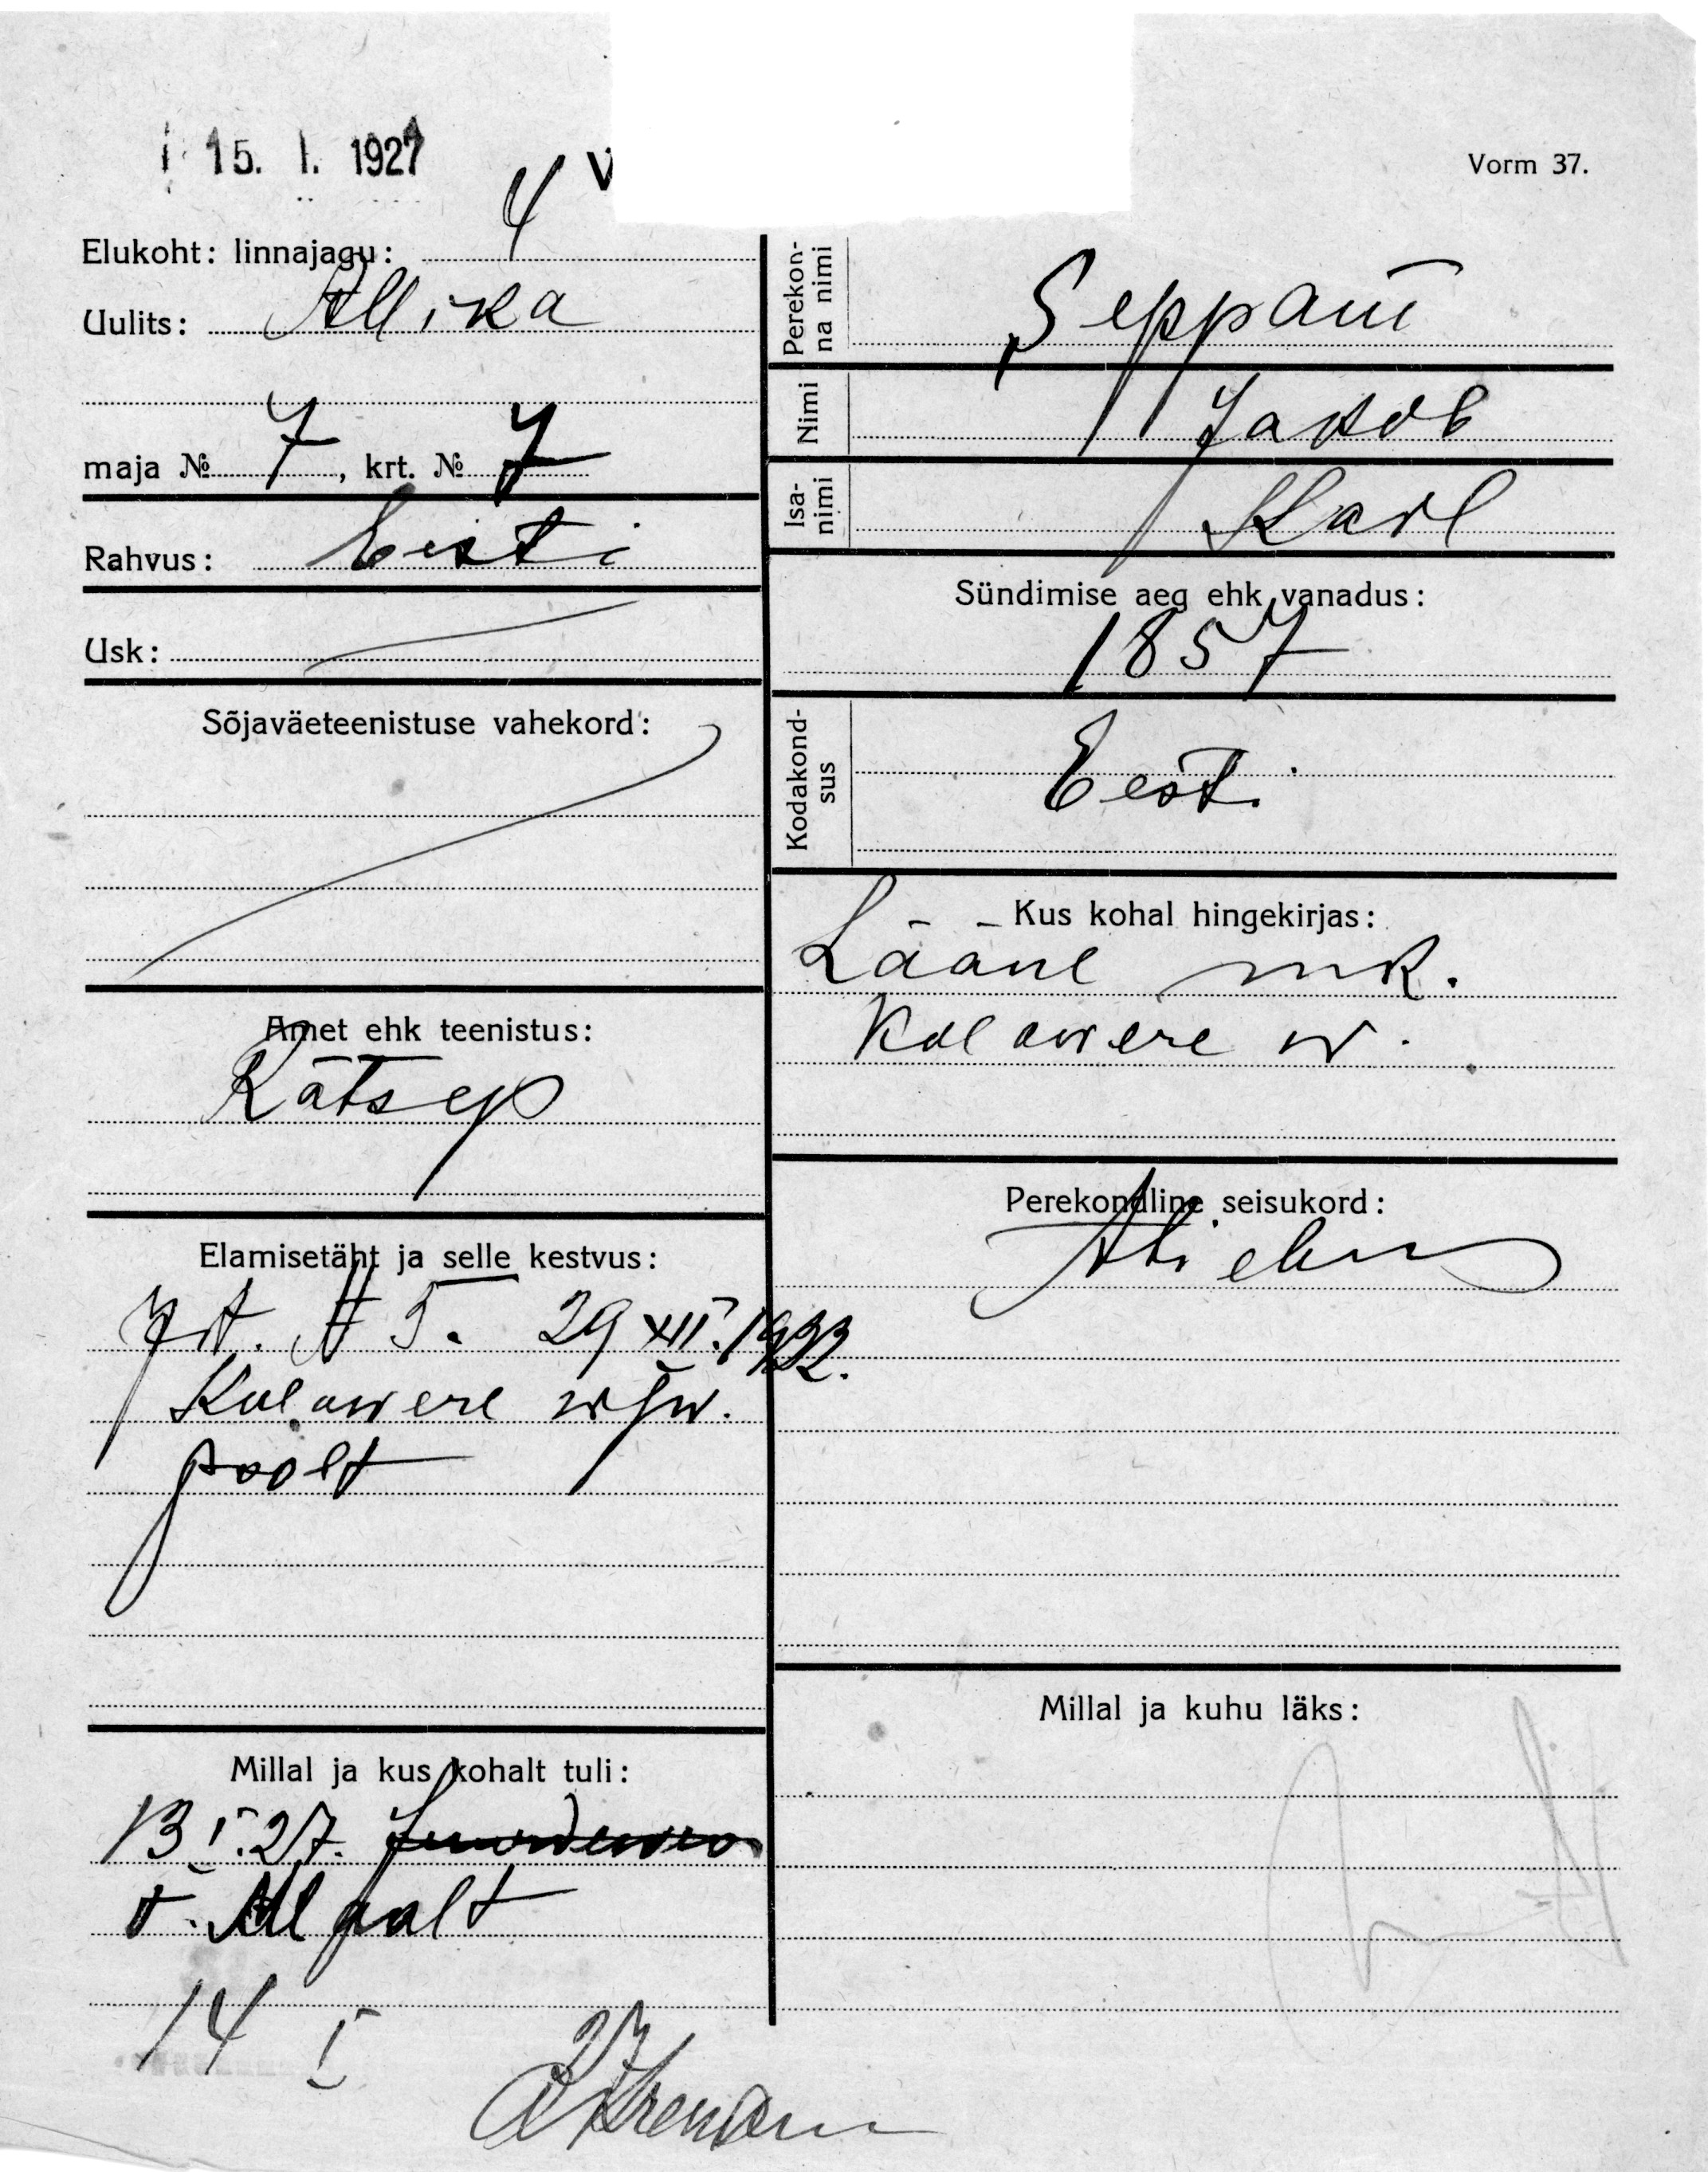 15. I. 1927
V
Vorm 37.
Elukoht: linnajagu: 4
Uulits: Allika
maja № 7, krt. № 7
Rahvus: Eesti
Usk:
Sõjaväeteenistuse vahekord:
Amet ehk teenistus:
Rätsep
Elamisetäht ja selle kestvus:
№ 5. 29 XII. 1922.
Kolowere
poolt
Millal ja kus kohalt tuli:
13 I. 27.
14 I 27
Perekonna nimi
Seppam
Nimi Jakob
Isanimi Karl
Sündimise aeg ehk vanadus:
1857
Kodakondsus
Eesti
Kus kohal hingekirjas:
Lääne mk.
Kolowere w.
Perekondline seisukord:
Abielus
Millal ja kuhu läks: